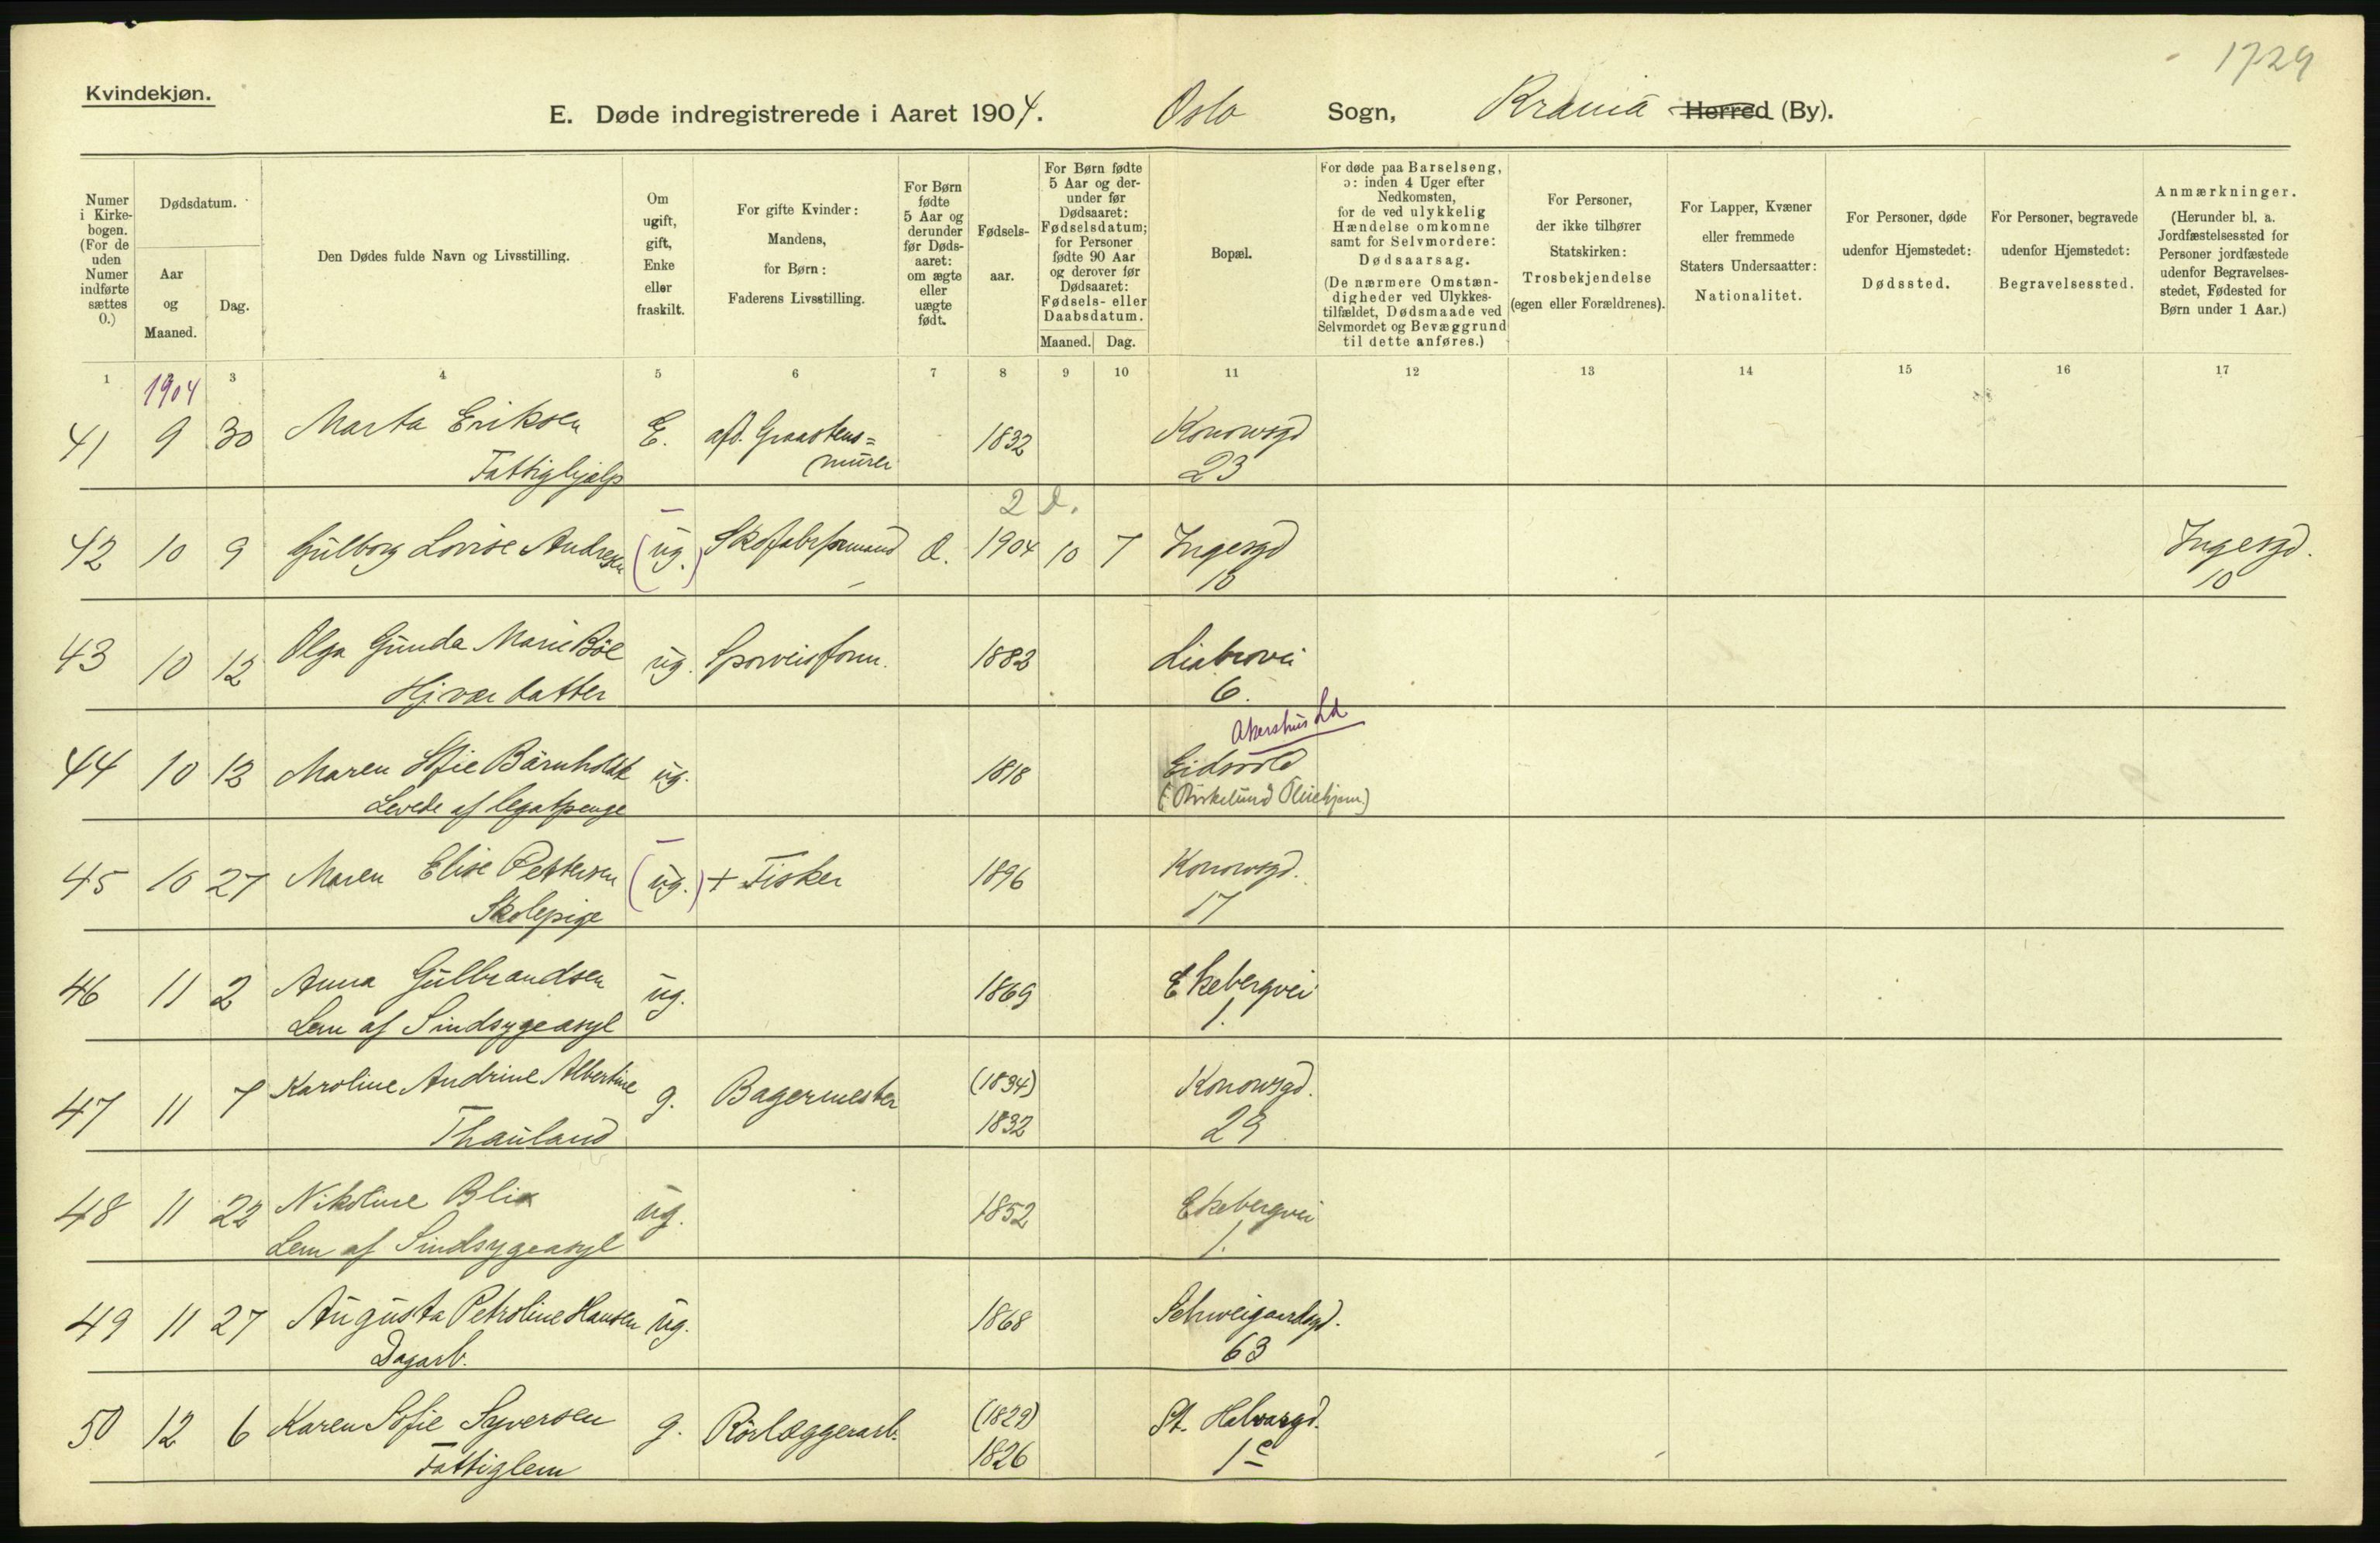 1729
Kvindekjøn.
E. Døde indregistrerede i Aaret 1904. Oslo Sogn, Krania Herred (By).
Numer i Kirke-bogen. (For de uden Numer indførte sættes 0.)
Dødsdatum.
Aar og Maaned.
Dag.
Den Dødes fulde Navn og Livsstilling.
Om ugift, gift, Enke eller fraskilt.
For gifte Kvinder: Mandens, for Børn: Faderens Livsstilling.
For Børn fødte 5 Aar og derunder før Døds-aaret: om ægte eller uægte født.
Fødsels-aar.
For Børn fødte 5 Aar og der-under før Dødsaaret: Fødselsdatum; for Personer fødte 90 Aar og derover før Dødsaaret: Fødsels- eller Daabsdatum.
Maaned. Dag.
Bopæl.
For døde paa Barselseng, ɔ: inden 4 Uger efter Nedkomsten, for de ved ulykkelig Hændelse omkomne samt for Selvmordere: Dødsaarsag. (De nærmere Omstæn-digheder ved Ulykkes-tilfældet, Dødsmaade ved Selvmordet og Bevæggrund til dette anføres.)
For Personer, der ikke tilhører Statskirken: Trosbekjendelse (egen eller Forældrenes).
For Lapper, Kvæner eller fremmede Staters Undersaatter: Nationalitet.
For Personer, døde udenfor Hjemstedet: Dødssted.
For Personer, begravede udenfor Hjemstedet: Begravelsessted.
Anmærkninger. (Herunder bl. a. Jordfæstelsessted for Personer jordfæstede udenfor Begravelses-stedet, Fødested for Børn under 1 Aar.)
1 3 4 5 6 7 8 9 10 11 12 13 14 15 16 17
1904
41 9 30 Marta Eriksen E. afd. Graastens= 1832 Konowsgd
Fattighjælp murer 23
2 d.
42 10 9 Gülborg Lovise Andresen (ug.) Skofabrformand 1904 10 7 Ingesgd Ingesgd.
10 10
43 10 12 Olga Gunda Marie Bøe ug. Sporveisform. 1882 Liabrovei
Hj.vær. datter 6.
Akershus
44 10 12 Maren Sofie Bärnholdt ug. 1818 Eidsvold
Levede af legatpenge (Birkelund Pleiehjem)
45 10 27 Maren Elise Pettersen (ug.) + Fisker 1896 Konowsgd.
Skolepige 17
46 11 2 Anna Gülbrandsen ug. 1869 Ekebergvei
Lem af Sindsygeasyl 1.
47 11 7 Karoline Andrine Albertine g. Bagermester (1834) Konowsgd.
Thauland 1832 29
48 11 22 Nikoline Blix ug. 1852 Ekebergvei
Lem af Sindsygeasyl 1.
49 11 27 Augusta Petroline Hansen ug. 1868 Schweigaardsgd.
Dagarb. 63
50 12 6 Karen Sofie Syversen g. Rörlæggerarb. (1829) St. Halvasgd.
Fattiglem 1826 1c